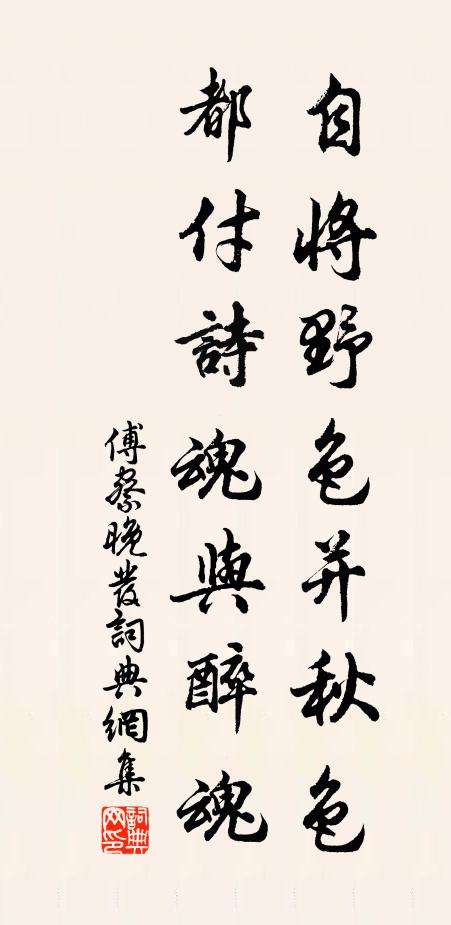 自將野色并秋色
都付詩魂與醉魂
傅察晚發詞典網集
詞典网印